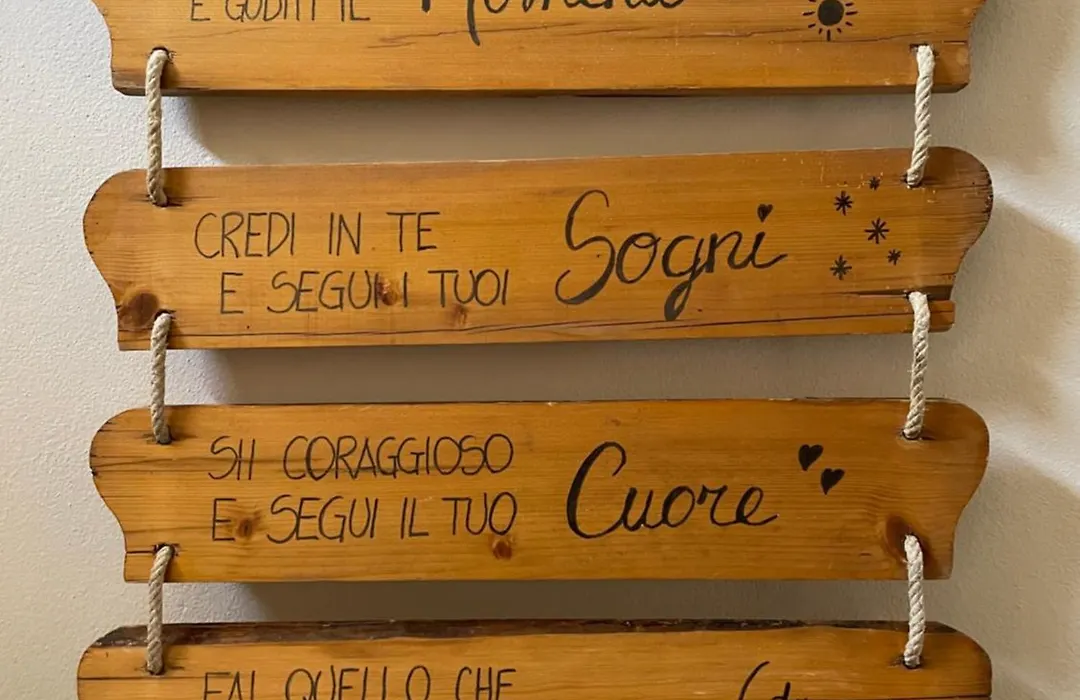 E GODITI IL Momento
CREDI IN TE
E SEGUI I TUOI Sogni
SII CORAGGIOSO
E SEGUI IL TUO Cuore
FAI QUELLO CHE